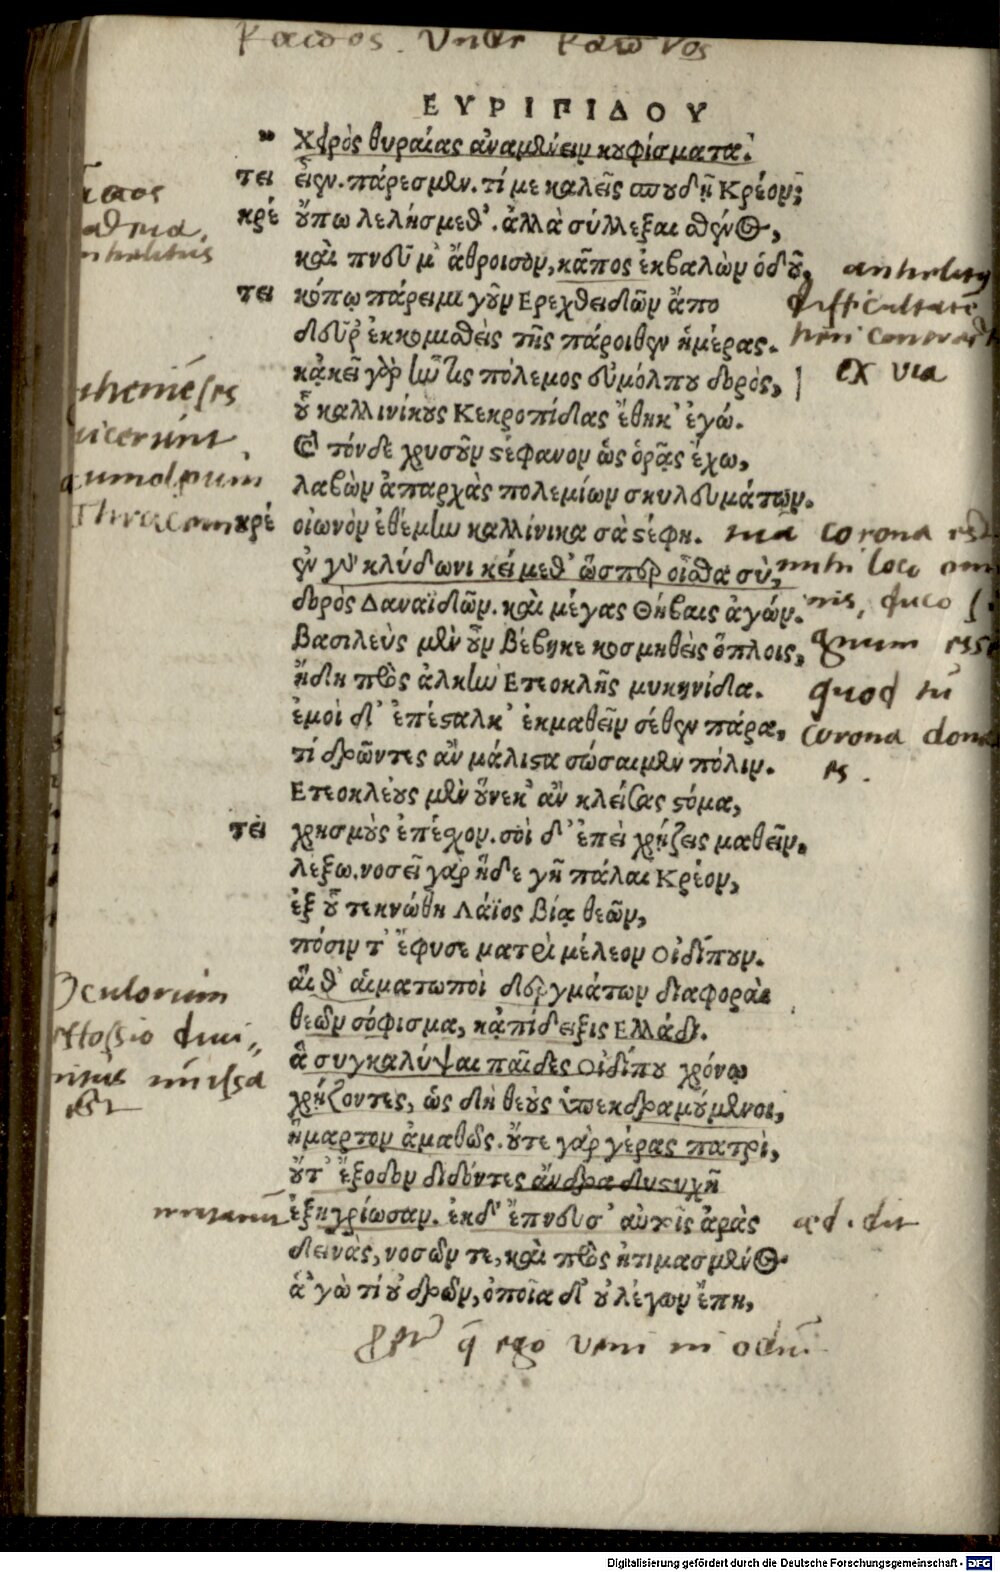 ΕΥΡΙΠΙΔΟΥ
„ Χειρὸς θυραίας ἀναμένειν κουφίσματα.
τει εἶεν. πάρεσμεν. τί με καλεῖς σπουδῇ Κρέον;
κρέ οὔπω λελήσμεθ᾽. ἀλλὰ σύλλεξαι σθένος,
καὶ πνεῦμ᾽ ἄθροισον, κᾶπος ἐκβαλὼν ὁδοῦ,
τει κόπῳ πάρειμι γοῦν Ερεχθειδῶν ἄπο
δεῦρ᾽ ἐκκομισθεὶς τῆς πάροιθεν ἡμέρας.
κᾀκεῖ γὰρ ἦν τις πόλεμος εὐμόλπου δορὸς,
οὗ καλλινίκους Κεκροπίδας ἔθηκ᾽ ἐγώ.
καὶ τόνδε χρυσοῦν στέφανον ὡς ὁρᾷς ἔχω,
λαβὼν ἀπαρχὰς πολεμίων σκυλευμάτων.
κρέ οἰωνὸν ἐθέμην καλλίνικα σὰ στέφη.
ἐν γὰρ κλύδωνι κείμεθ᾽ ὥσπερ οἶσθα σὺ,
δορὸς Δαναϊδῶν. καὶ μέγας Θήβαις ἀγών.
Βασιλεὺς μὲν οὖν βέβηκε κοσμηθεὶς ὅπλοις,
ἤδη πρὸς ἀλκὴν Ετεοκλῆς μυκηνίδα.
ἐμοὶ δ᾽ ἐπέσταλκ᾽ ἐκμαθεῖν σέθεν πάρα,
τί δρῶντες ἂν μάλιστα σώσαιμεν πόλιν.
Ετεοκλέους μὲν οὕνεκ᾽ ἂν κλείσας στόμα,
τει χρησμοὺς ἐπέσχον. σοὶ δ᾽ ἐπεὶ χρῄζεις μαθεῖν,
λεξω. νοσεῖ γὰρ ἥδε γῆ πάλαι Κρέον,
ἐξ οὗ τεκνώθη Λάϊος βίᾳ θεῶν,
πόσιν τ᾽ ἔφυσε ματρὶ μέλεον Οἰδίπουν.
αἵ θ᾽ αἱματωποὶ δεργμάτων διαφοραὶ
θεῶν σόφισμα, κᾀπίδειξις Ελλάδι.
ἃ συγκαλύψαι παῖδες Οἰδίπου χρόνῳ
χρῄζοντες, ὡς δὴ θεοὺς ὑπεκδραμούμενοι,
ἥμαρτον ἀμαθῶς. οὔτε γὰρ γέρας πατρὶ,
οὔτ᾽ ἔξοδον διδόντες ἄνδρα δυστυχῆ
ἐξηγρίωσαν. ἐκ δ᾽ ἔπνευσ᾽ αὐτοῖς ἀρὰς
δεινὰς, νοσῶν τε, καὶ πρὸς ἠτιμασμένος.
ἁ᾽ γὼ τί οὐ δρῶν, ὁποῖα δ᾽ οὐ λέγων ἔπη,
anhelitus
difficultatē
ex via
vicerunt
tua corona est
mihi loco omi
nis, duco
quod tu
corona dona
Oculorum
effossio divi
nitus immissa
est
ego veni in odiū
Digitalisierung gefördert durch die Deutsche Forschungsgemeinschaft - DFG